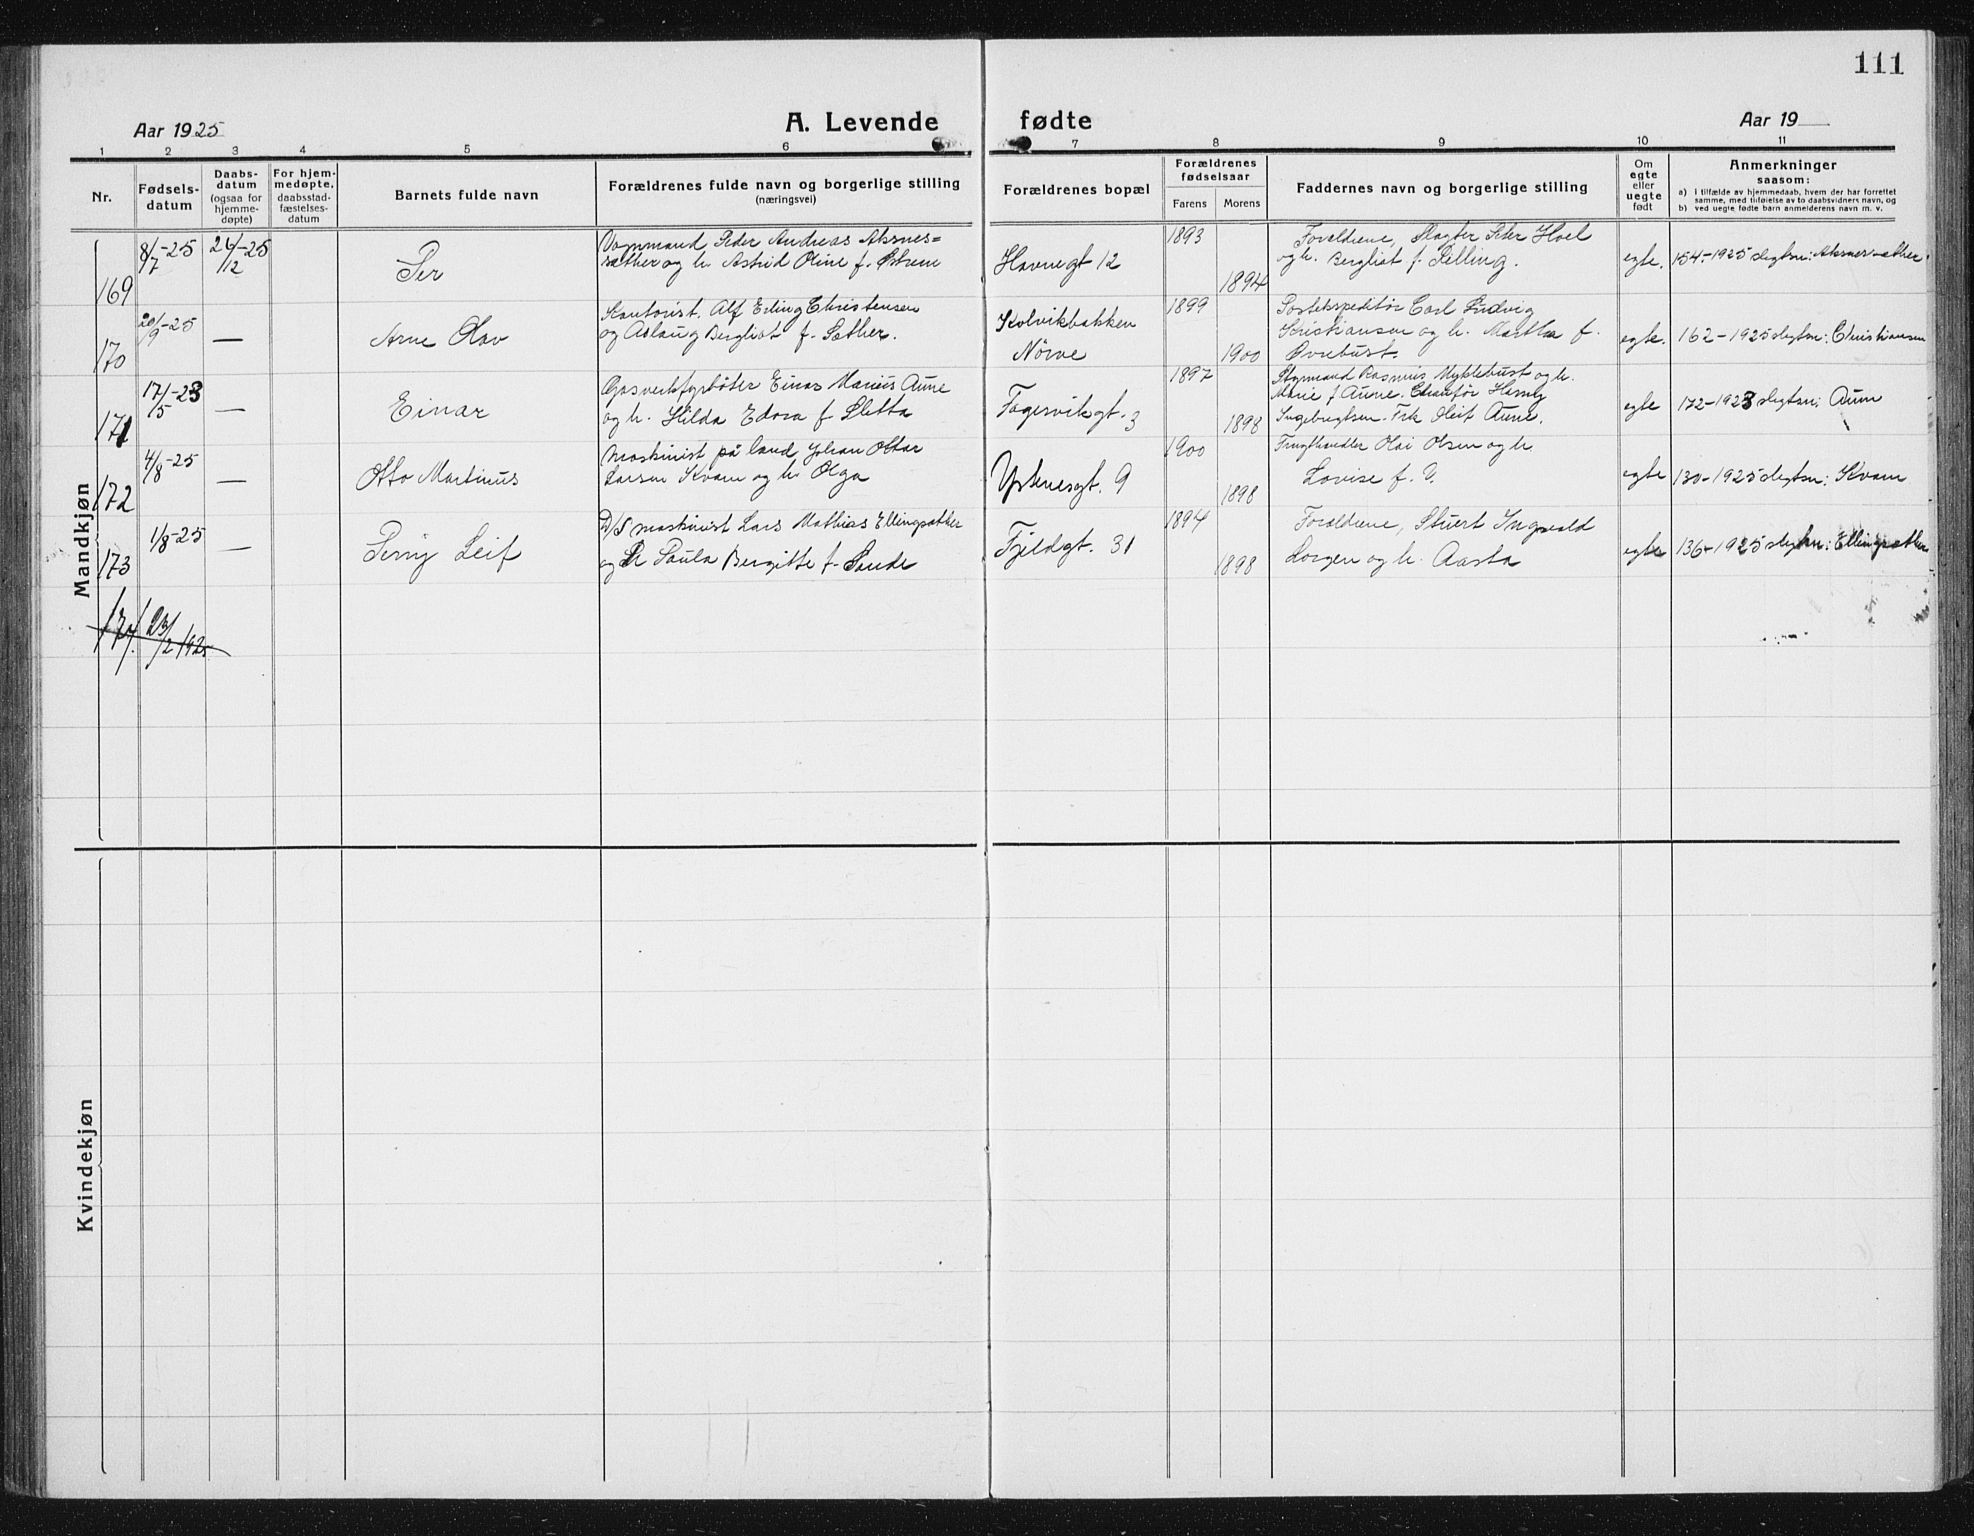 111
Aar 1925
A. Levende fødte
Aar 19
1 2 3 4 5 6 7 8 9 10 11
Nr.
Fødsels-
datum
Daabs-
datum
(ogsaa for
hjemme-
døpte)
For hjem-
medøpte,
daabsstad-
fæstelses-
datum
Barnets fulde navn
Forældrenes fulde navn og borgerlige stilling
(næringsvei)
Forældrenes bopæl
Forældrenes
fødselsaar
Farens Morens
Faddernes navn og borgerlige stilling
Om
egte
eller
uegte
født
Anmerkninger
saasom:
a) I tilfælde av hjemmedaab, hvem der har forrettet
samme, med tilføielse av to daabsvidners navn, og
b) ved uegte fødte barn anmelderens navn m. v.
Mandkjøn
169
8/7-25
26/12-25
Per
Vognmand Peder Andreas Aksnes=
sæther og h. Astrid Oline f. Østrem
Havnegt 12
1893
1894
Forældrene, Slagter Peter Hoel
og h. Bergliot f. Pilling.
egte.
154-1925 slegtsn: Aksnessæther.
170
20/9-25
—
Arne Olav
Kontorist. Alf Erling Christensen
og Aslaug Bergliot f. Sæther.
Kolvikbakken
Nørve
1899
1900
Postekspeditør Carl Ludvig
Kristiansen og h. Martha f.
Øvrebust.
egte.
162-1925 slegtsn: Christiansen
171
17/5-23
—
Einar
Gasverksfyrbøter Einar Marius Aune
og h. Hilda Edora f Sletta
Fagersvikgt. 3
1897
1898
Styrmand Rasmus Myklebust og h.
Marie f Aune. Chauffør Harry
Ingebrigtsen. Frk Aune.
egte
172-1923 slegtsn: Aune
172
4/8-25
—
Otto Martinus
Maskinist på land Johan Ottar
Larsen Kvam og h. Olga
Ystenesgt. 9
1900
1898
Frugthandler Olai Olsen og h
Lovise f. V.
egte
130-1925 slegtsn: Kvam
173
1/8-25
—
Perry Leif
D/S maskinist Lars Mathias Ellingsæther
og h Paula Bergitte f. Sande
Fjeldgt. 31
1894
1898
Forældrene, Stuert Ingvald
Lorgen og h. Aasta
egte
136-1925 slegtsn: Ellingsæther
174. 23/2 1925
Kvindekjøn